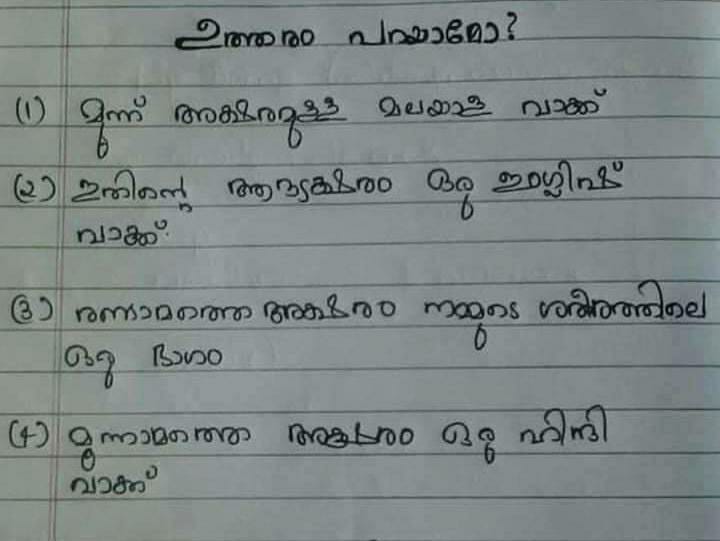 ഉത്തരം പറയാമോ?
(1) മൂന്ന് അക്ഷരമുള്ള മലയാള വാക്ക്
(2) ഇതിന്റെ ആദ്യക്ഷരം ഒരു ഇംഗ്ലീഷ്
വാക്ക്.
(3) രണ്ടാമത്തെ അക്ഷരം നമ്മുടെ ശരീരത്തിലെ
ഒരു ഭാഗം
(4) മൂന്നാമത്തെ അക്ഷരം ഒരു ഹിന്ദി
വാക്ക്